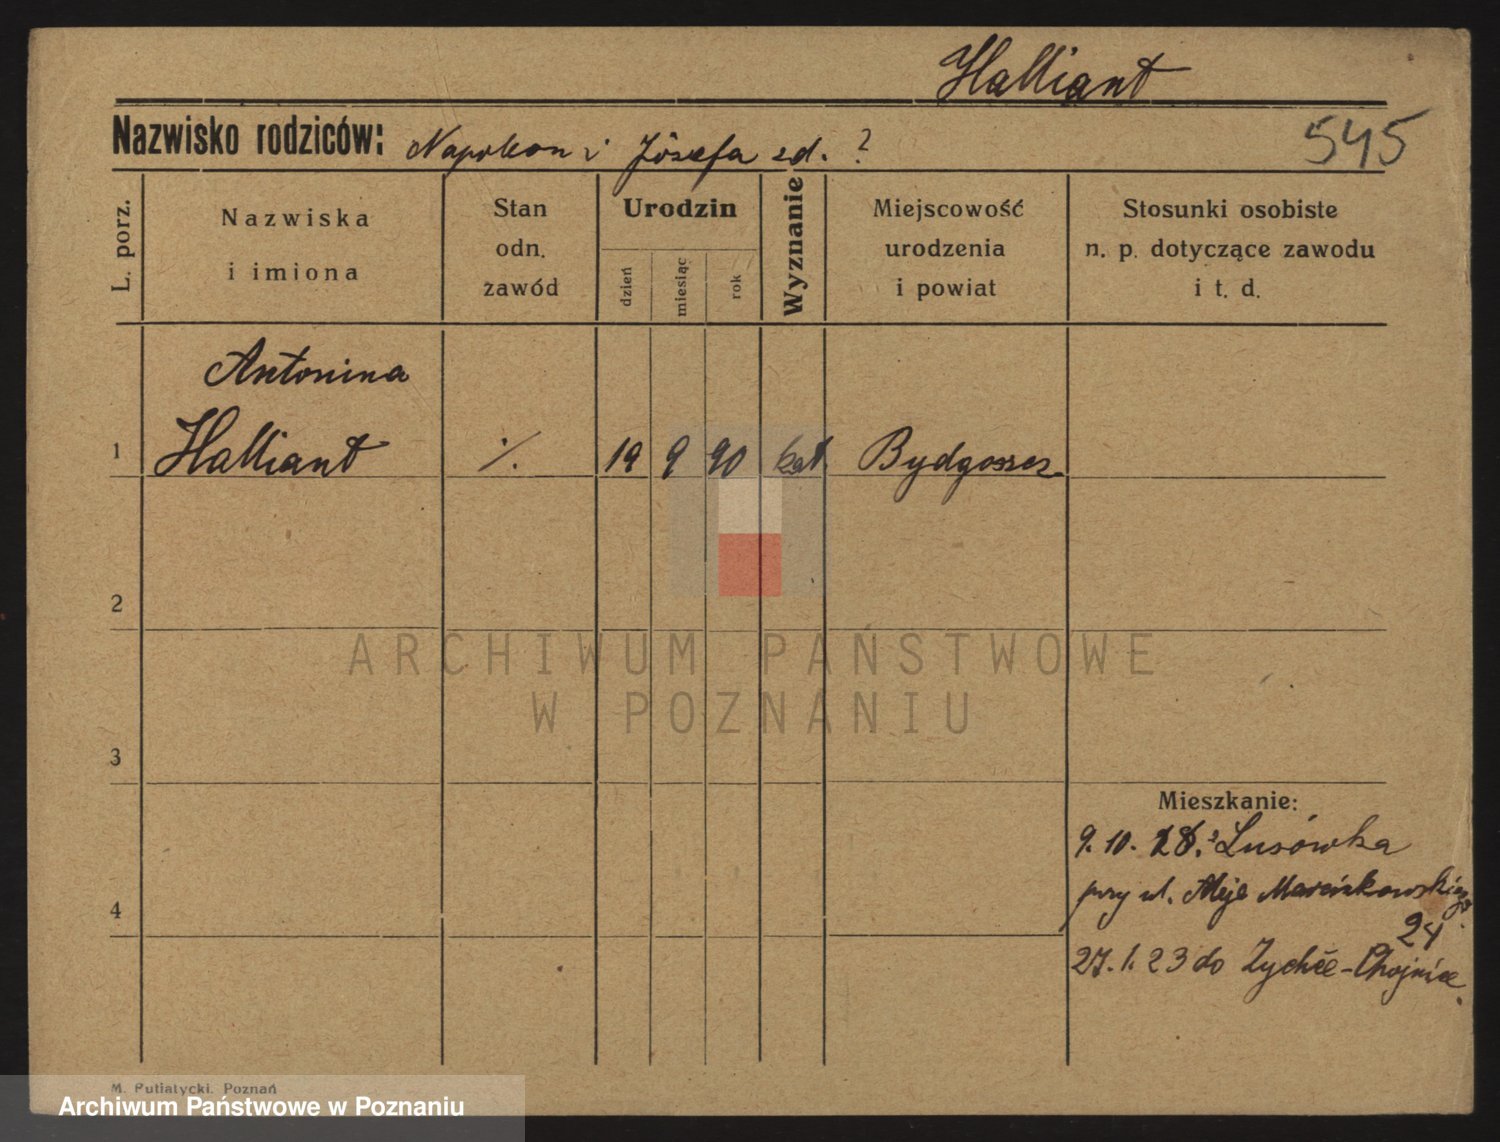 Halliant
Nazwisko rodziców: Napoleon i Józefa zd. ?
545
L. porz.
Nazwiska
i imiona
Stan
odn.
zawód
Urodzin
dzień
miesiąc
rok
Wyznanie
Miejscowość
urodzenia
i powiat
Stosunki osobiste
n. p. dotyczące zawodu
i t. d.
Antonina
1 Halliant ·/. 19 9 90 kat. Bydgoszcz
2
ARCHIWUM PAŃSTWOWE
W POZNANIU
3
Mieszkanie:
9. 10. z Lusówka
4
przy ul. Aleje Marcinkowskiego
24
27. 1. 23 do Zychce-Chojnice.
M. Putiatycki. Poznań
Archiwum Państwowe w Poznaniu